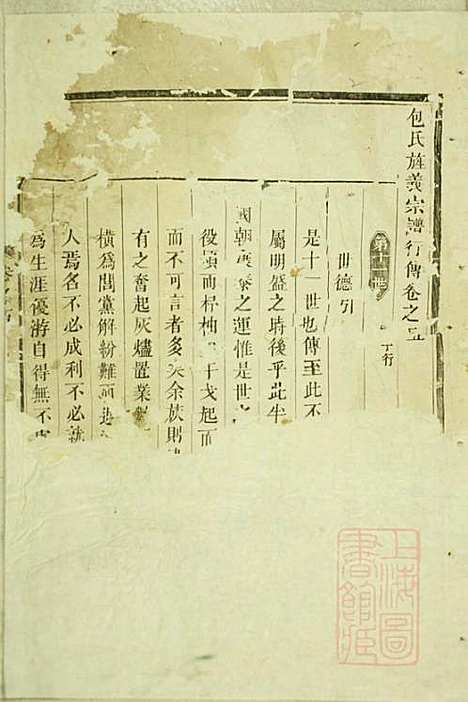 包氏旌義宗譜行傳卷之五
第十一世
丁行
世德引
是十一世也傳至此不
屬明盛之時後乎此半
國朝 之運惟是世之
役 而杼柚 干戈起而
而不可言者多矣余族則
有之奮起灰燼置業
橫為閭黨解紛難而
人焉名不必成利不必就
為生涯優游自得無不
上海圖書館藏